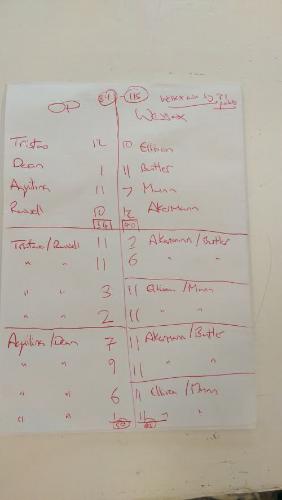 84 - 115 Wessex win by 31 points
OP Wessex
Tristao 12 10 Ellison
Dean 1 11 Butler
Aquilina 11 7 Munn
Russell 10 12 Akermann
34 40
Tristao/Russell 11 3 Akermann/Butler
" " 11 6 " "
" " 3 11 Ellison/Munn
" " 2 11 " "
Aquilina/Dean 7 11 Akermann/Butler
" " 9 11 " "
" " 6 11 Ellison/Munn
" " 1 11 " "
50